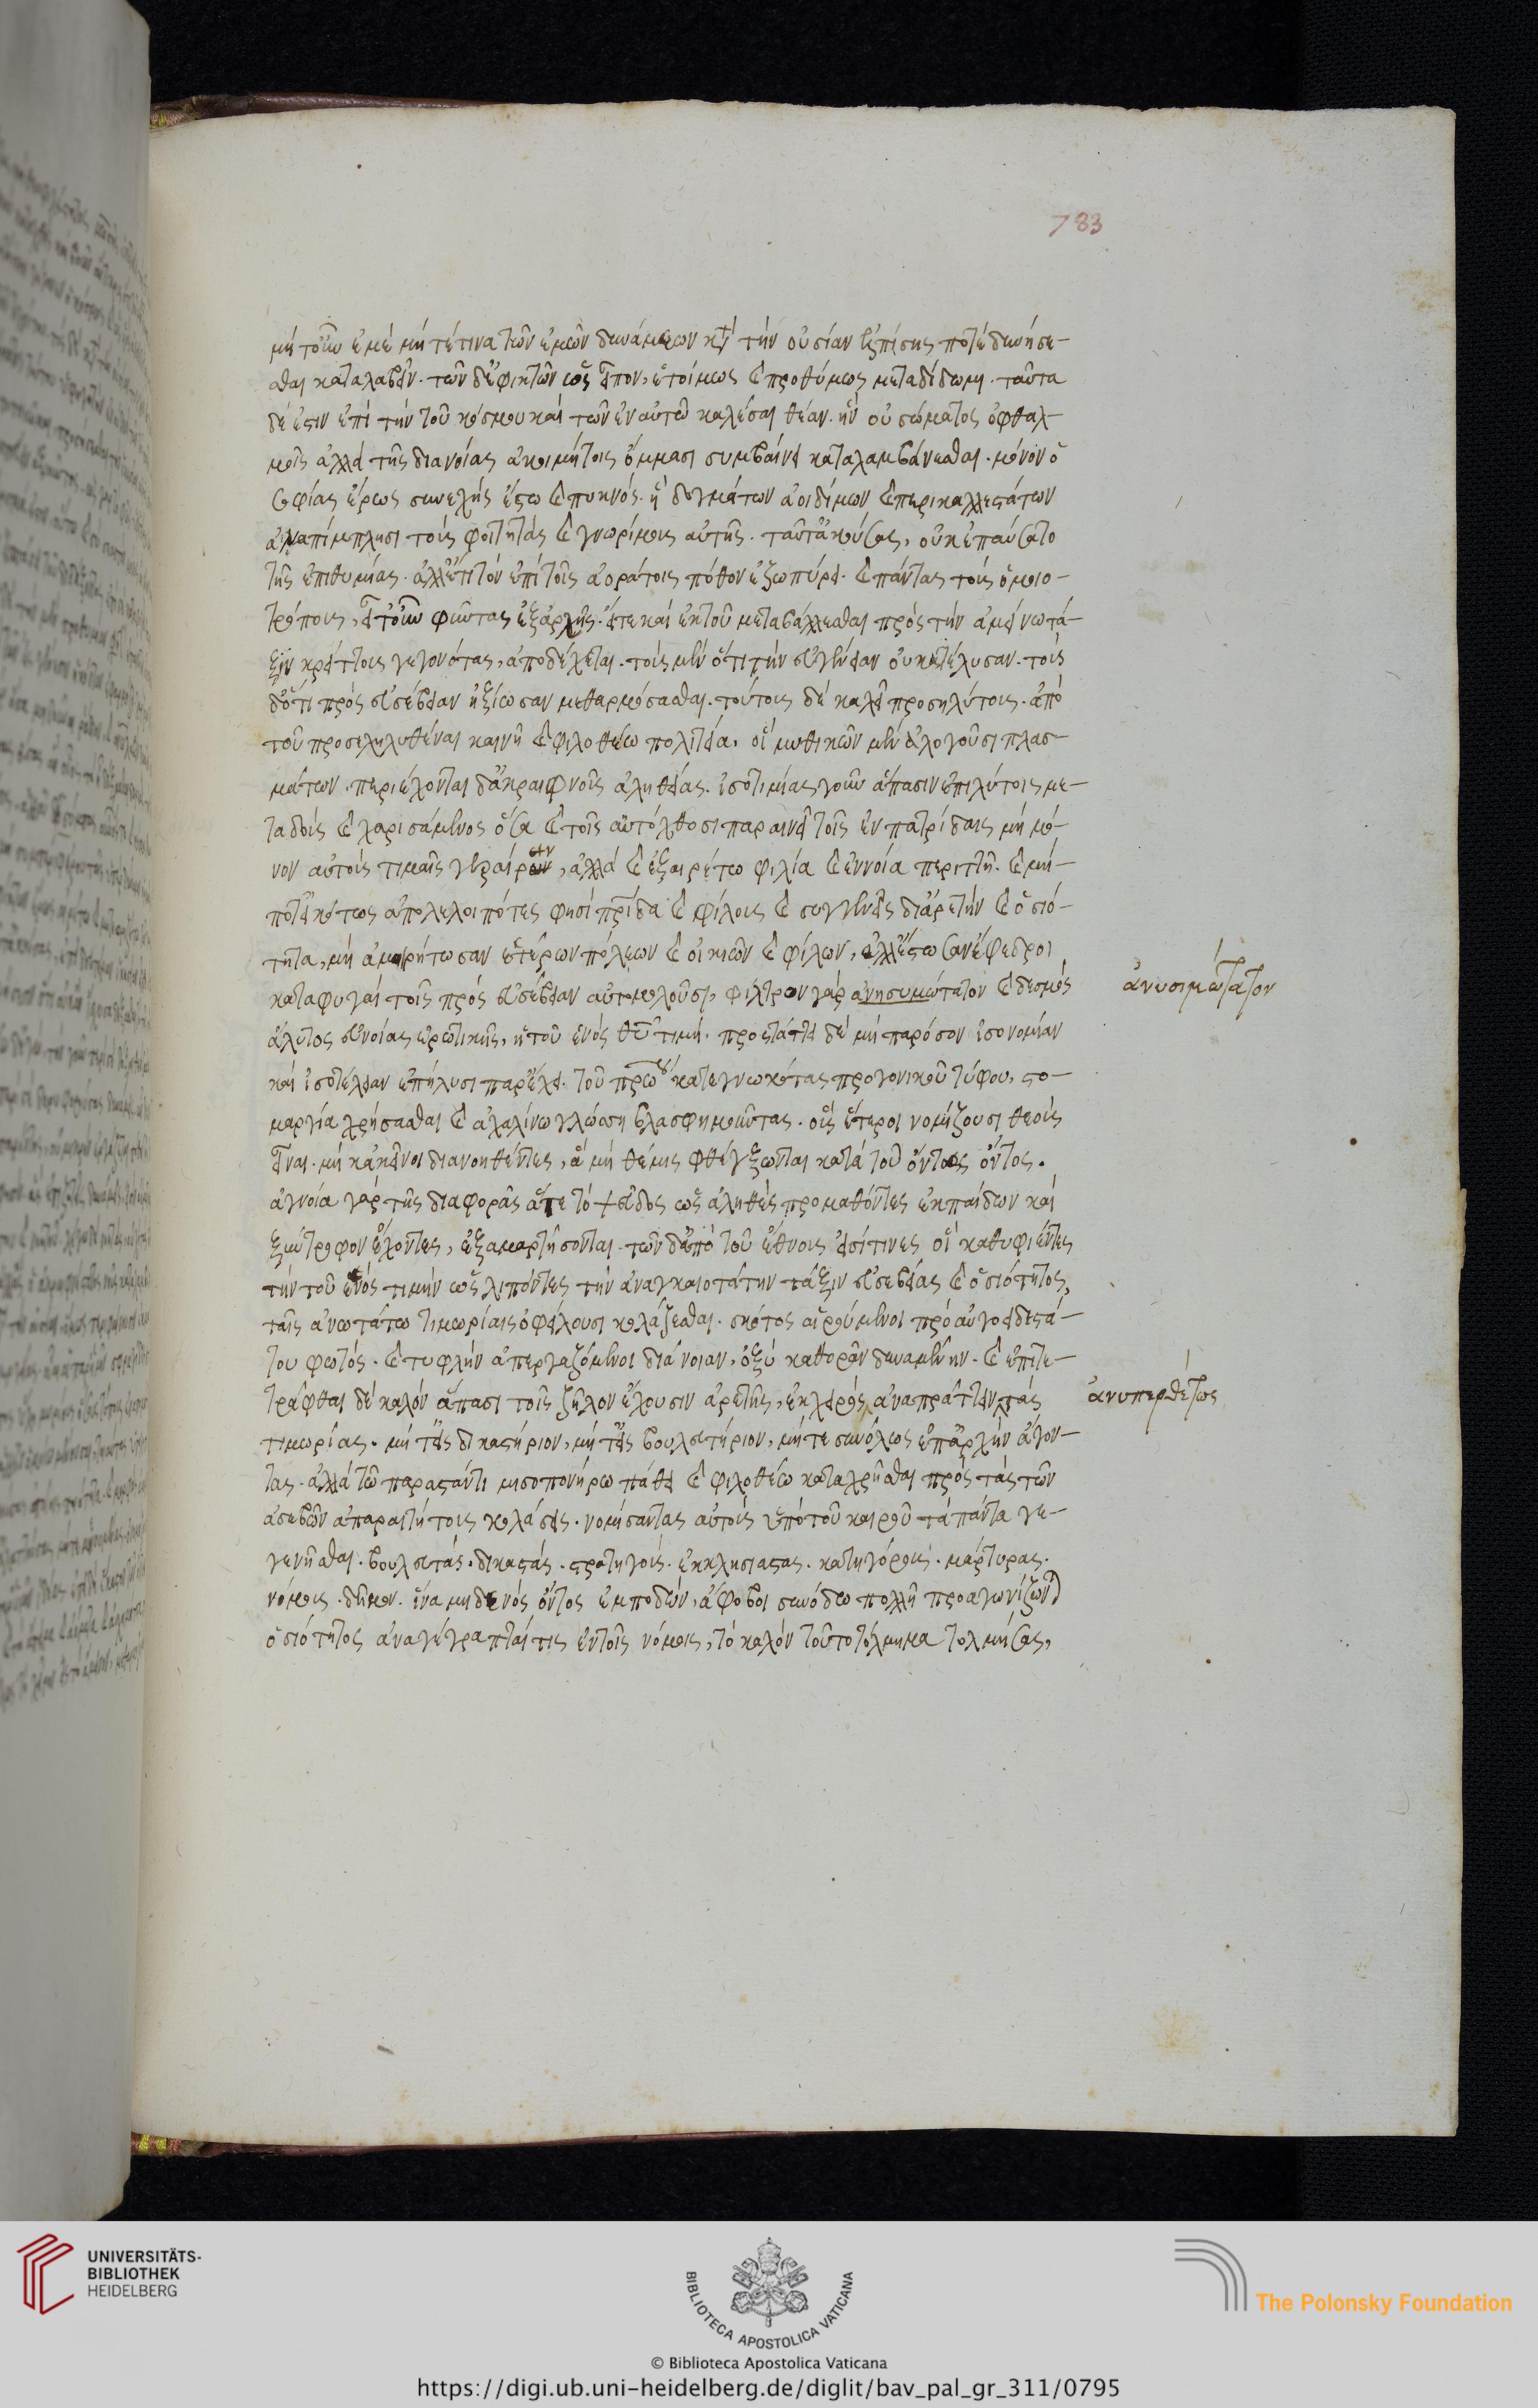 783
μὴ τοίνυν ἐμὲ μήτέ τινα τῶν ἐμῶν δυνάμεων κτὶ τὴν οὐσίαν ἐλπίσῃς ποτὲ δυνήσε-
σθαι καταλαβεῖν. τῶν δ' ἐφικτῶν ὡς εἶπον, ἑτοίμως καὶ προθύμως μεταδίδωμι. ταῦτα
δέ ἐστιν ἐπὶ τὴν τοῦ κόσμου καὶ τῶν ἐν αὐτῷ καλέσαι θέαν. ἣν οὐ σώματος ὀφθαλ-
μοῖς ἀλλὰ τῆς διανοίας ἀκοιμήτοις ὄμμασι συμβαίνει καταλαμβάνεσθαι. μόνον ὁ
σοφίας ἔρως συνεχὴς ἔστω καὶ πυκνός. ἣ δογμάτων ἀοιδίμων καὶ περικαλλεστάτων
ἀναπίμπλησι τοὺς φοιτητὰς καὶ γνωρίμους αὐτῆς. ταῦτ' ἀκούσας, οὐκ ἐπαύσατο
τῆς ἐπιθυμίας. ἀλλ' ἔτι τὸν ἐπὶ τοῖς ἀοράτοις πόθον ἐζωπύρει. καὶ πάντας τοὺς ὁμοιο-
τρόπους, εἴτ' οὖν φύντας ἐξαρχῆς. εἴτε καὶ ἐκ τοῦ μεταβάλλεσθαι πρὸς τὴν ἀμείνω τά-
ξιν κρείττους γεγονότας, ἀποδέχεται. τοὺς μὲν ὅτι τὴν εὐγένειαν οὐ κατέλυσαν. τοὺς
δ' ὅτι πρὸς εὐσέβειαν ἠξίωσαν μεθαρμόσασθαι. τούτους δὲ καλεῖ προσηλύτους. ἀπὸ
τοῦ προσεληλυθέναι καινῇ καὶ φιλοθέῳ πολιτείᾳ. οἳ μυθικῶν μὲν ἀλογοῦσι πλασ-
μάτων. περιέχονται δ' ἀκραιφνοῦς ἀληθείας. ἰσοτιμίας γοῦν ἅπασιν ἐπιλύτοις με-
ταδοὺς καὶ χαρισάμενος ὅσα καὶ τοῖς αὐτόχθοσι παραινεῖ τοῖς εὐπατρίδαις μὴ μό-
νον αὐτοὺς τιμαῖς γεραίρειν, ἀλλὰ καὶ ἐξαιρέτῳ φιλίᾳ καὶ εὐνοίᾳ περιττῇ. καὶ μή
ποτ' εἰκότως ἀπολελοιπότες φησὶ πρίδα καὶ φίλους καὶ συγγενεῖς δι' ἀρετὴν καὶ ὁσιό-
τητα, μὴ ἀμοιρήτωσαν ἑτέρων πόλεων καὶ οἰκιῶν καὶ φίλων, ἀλλ' ἔστωσαν ἔφεδροι
καταφυγαὶ τοῖς πρὸς εὐσέβειαν αὐτομολοῦσι, φίλτρον γὰρ ἀνησυμώτατον καὶ δεσμὸς
ἀνυσιμώτατον
ἄλυτος εὐνοίας ἑρωτικῆς, ἡ τοῦ ἑνὸς θυ τιμή. προστάττει δὲ μὴ παρόσον ἰσονομίαν
καὶ ἰσοτέλειαν ἐπήλυσι παρέχει. τοῦ πρώου κατεγνωκότας προγονικοῦ τύφου, στο-
μαργίᾳ χρήσασθαι καὶ ἀχαλίνῳ γλώσσῃ βλασφημοῦντας. οὓς ἕτεροι νομίζουσι θεοὺς
εἶναι. μὴ κἀκεῖνοι διανοηθέντες, ἃ μὴ θέμις φθέγξωνται κατὰ τοῦ ὄντως ὄντος.
ἀγνοίᾳ γὰρ τῆς διαφορᾶς ἅτε τὸ ψεῦδος ὡς ἀληθὲς προμαθόντες ἐκ παίδων καὶ
ξύντροφον ἔχοντες, ἐξαμαρτήσονται. τῶν δ' ἀπὸ τοῦ ἔθνους εἰσί τινες οἳ καθυφιέντες
τὴν τοῦ ἑνὸς τιμὴν ὡς λιπόντες τὴν ἀναγκαιοτάτην τάξιν εὐσεβείας καὶ ὁσιότητος,
ταῖς ἀνωτάτω τιμωρίαις ὀφείλουσι κολάζεσθαι. σκότος αἱρούμενοι πρὸ αὐγοειδεστά-
του φωτός. καὶ τυφλὴν ἀπεργαζόμενοι διάνοιαν, ὀξὺ καθορᾶν δυναμένην. καὶ ἐπιτε-
τράφθαι δὲ καλὸν ἅπασι τοῖς ζῆλον ἔχουσιν ἀρετῆς, ἐκ χειρὸς ἀναπράττειν τὰς
ἀνυπερθέτως
τιμωρίας. μήτ' εἰς δικαστήριον, μήτ' εἰς βουλευτήριον, μήτε συνόλως ἐπ' ἀρχὴν ἄγον-
τας. ἀλλὰ τῷ παραστάντι μισοπονήρῳ πάθει καὶ φιλοθέῳ καταχρῆσθαι πρὸς τὰς τῶν
ἀσεβῶν ἀπαραιτήτους κολάσεις. νομίσαντας αὐτοὺς ὑπὸ τοῦ καιροῦ τὰ πάντα γε-
γενῆσθαι. βουλευτάς. δικαστάς. στρατηγούς. ἐκκλησιαστάς. κατηγόρους. μάρτυρας.
νόμους. δῆμον. ἵνα μηδενὸς ὄντος ἐμποδών, ἄφοβοι συνόδῳ πολλῇ προαγωνίζων
ὁσιότητος ἀναγέγραπταί τις ἐν τοῖς νόμοις, τὸ καλὸν τοῦτο τόλμημα τολμήσας,
UNIVERSITÄTS-
BIBLIOTHEK
HEIDELBERG
BIBLIOTECA APOSTOLICA VATICANA
© Biblioteca Apostolica Vaticana
The Polonsky Foundation
https://digi.ub.uni-heidelberg.de/diglit/bav_pal_gr_311/0795